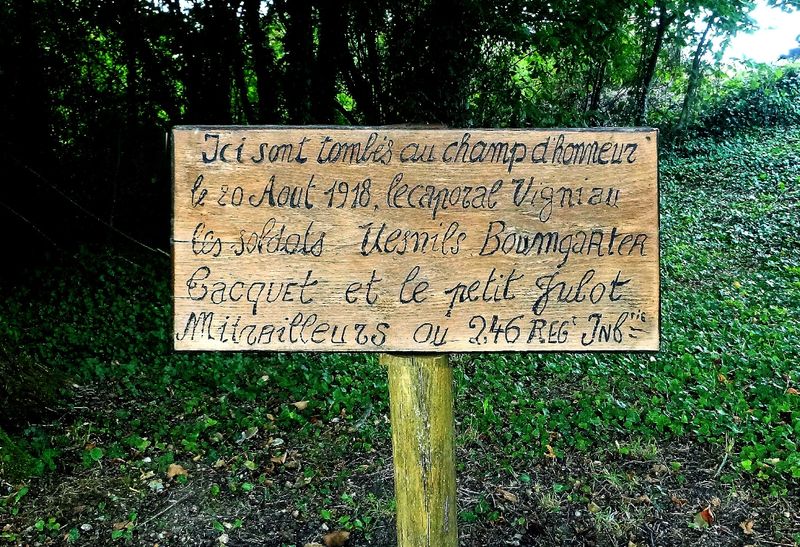 Ici sont tombés au champ d'honneur
le 20 Aout 1918, le caporal Vigniau
les soldats Mesnils Bowmgarter
Cacquet et le petit Julot
Mitrailleurs au 246 Regt Infrie